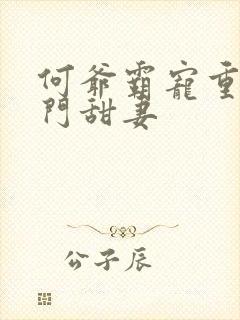 何爺霸寵重
門甜妻
公子辰